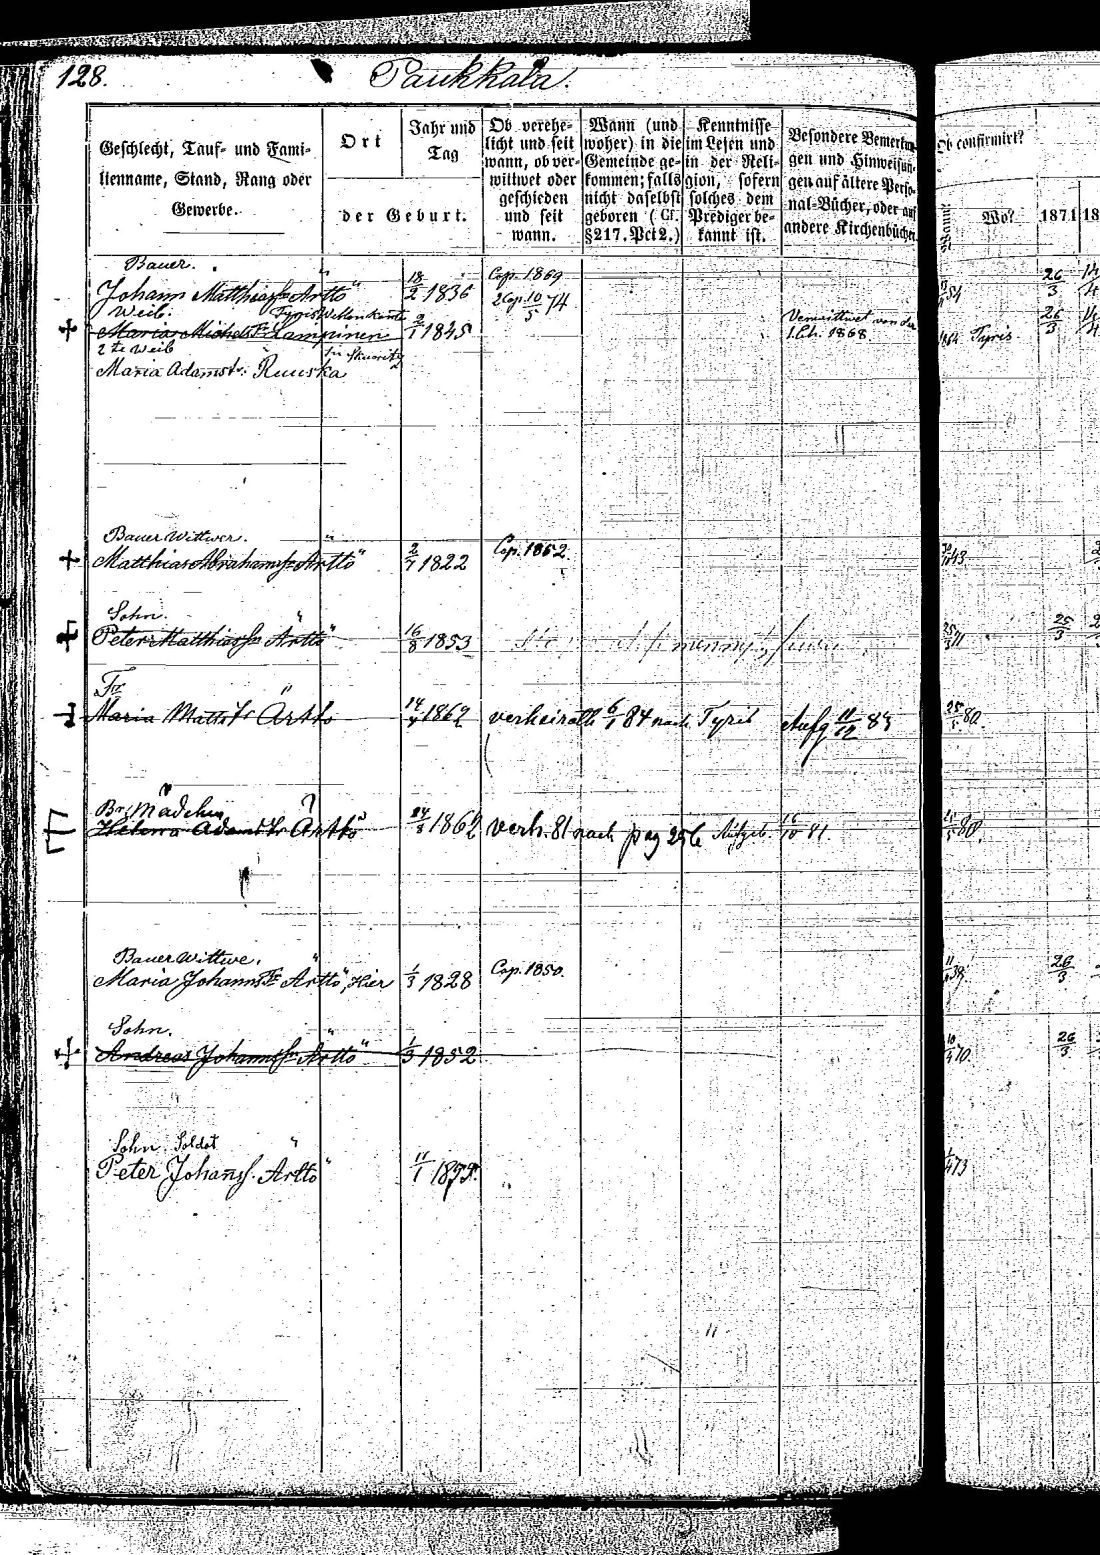 128.
Paukkala.
Geschlecht, Tauf- und Fami-
lienname, Stand, Rang oder
Gewerbe.
Ort
Jahr und
Tag
der Geburt.
Ob verehe-
licht und seit
wann, ob ver-
wittwet oder
geschieden
und seit
wann.
Wann (und
woher) in die
Gemeinde ge-
kommen; falls
nicht daselbst
geboren (Cf.
§217. Pct 2.)
Kenntnisse
im Lesen und
in der Reli-
gion, sofern
solches dem
Prediger be-
kannt ist.
Besondere Bemerkun-
gen und Hinweisun-
gen auf ältere Perso-
nal-Bücher, oder auf
andere Kirchenbücher
Ob confirmirt?
Wann?
Wo?
1871
18
Bauer.
Johann Matthiass. Arttö
18/2 1836
Cop. 1869
2 Cop. 10/5 74
54
26/3
14/4
Weib. Tyris
Maria Michels Tr. Lamppinen
2/1 1845
Verwittwet von der
1. Eh. 1868.
Tyris
26/3
14/4
2te Weib
Maria Adamstr. Ruuska
Bauer Wittwer.
Matthias Abrahamss. Arttö
2/7 1822
Cop. 1852
43
Sohn.
Peter Matthiass. Arttö
16/8 1853
71
25/3
Tr.
Maria Matts Tr. Ärttö
14/4 1862
verheirath 6/1 84 nach Tyris
Aufg 11/12 83
25/5 80.
Br. Mädchen
Helena Adams Tr. Ärttö
24/3 1862
verh. 81 nach pag 256 Aufgeb. 16/10 81.
80.
Bauer Wittwe.
Maria Johanns Tr. Ärttö, Hier
1/3 1828
Cop. 1850.
26/3
Sohn.
Andreas Johannss. Arttö
1/3 1852
70.
26/3
Sohn. Soldat
Peter Johanss. Arttö
11/1
73